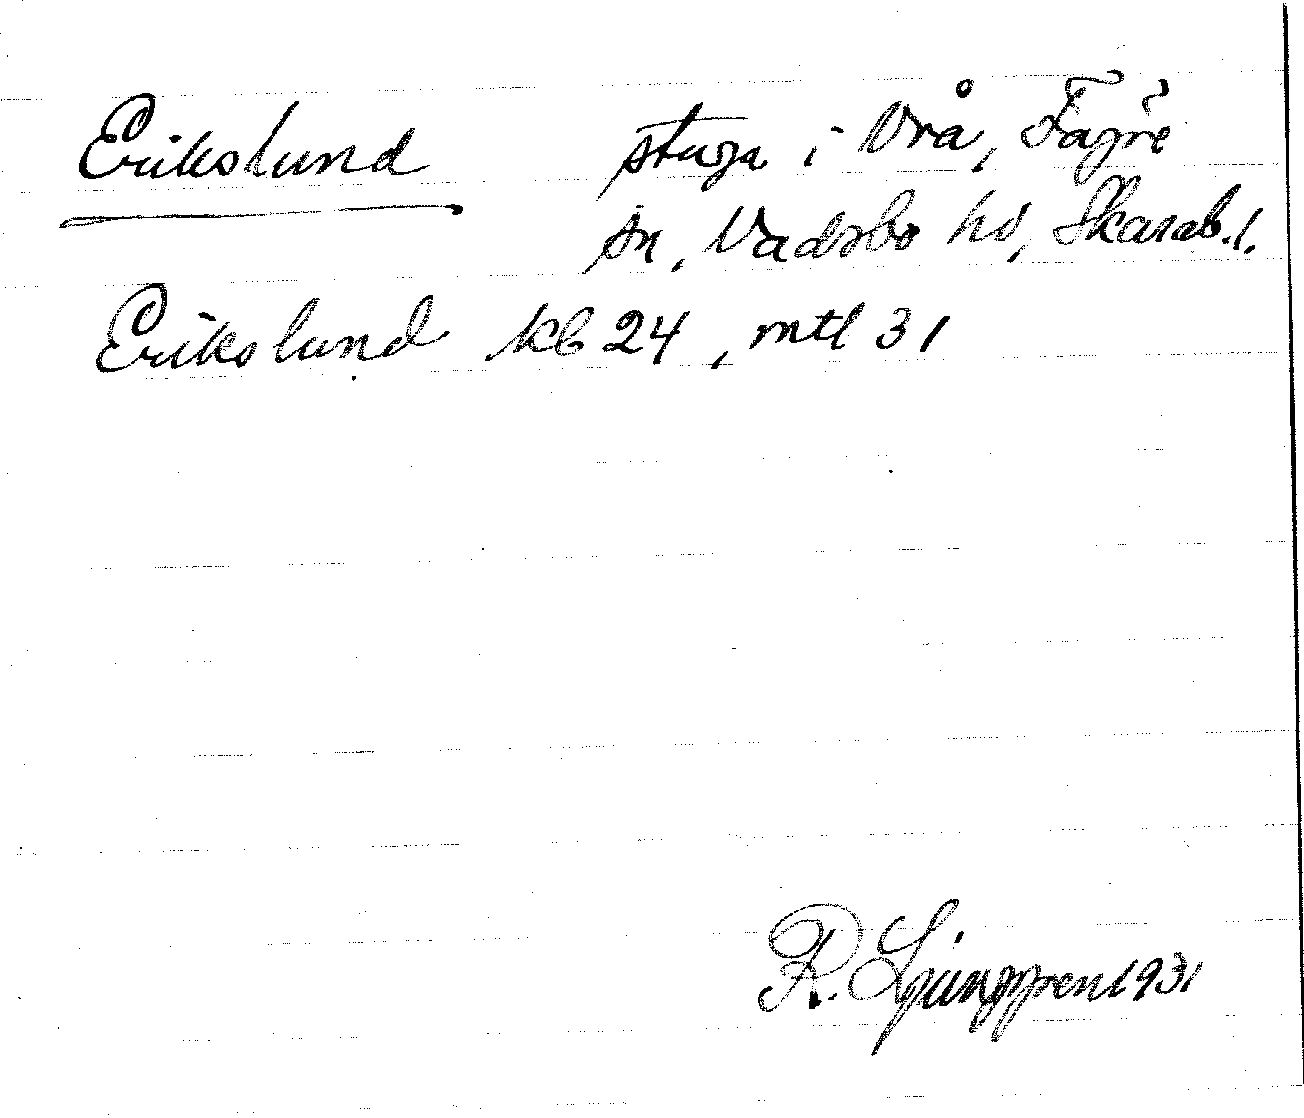 Erikslund stuga i Vrå, Fägre
sn, Vadsbo hd, Skarab.l.
Erikslund kb 24, mtl 31
R. Ljunggren 1931